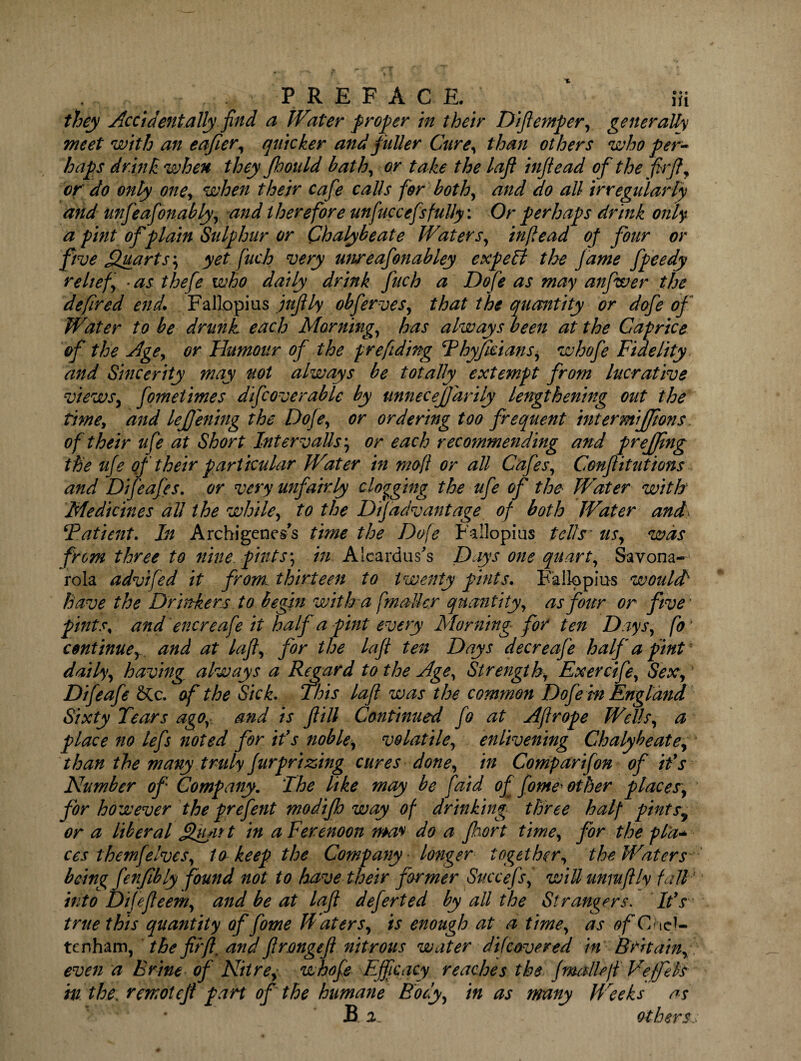 PREFACE. iii
they Accidentally find a Water proper in their Distemper, generally
meet with an easier, quicker and fuller Cure, than others who per-
haps drink when they should bath, or take the last instead of the first,
or do only one, when their case calls for both, and do all irregularly
and unseasonably, and therefore unsuccessfully: Or perhaps drink only
a pint of plain Sulphur or Chalybeate Waters, instead of four or
five Quarts; yet such very unreasonabley expect the same speedy
relief, as these who daily drink such a Dose as may answer the
desired end. Fallopius justly observes, that the quantity or dose of
Water to be drunk each Morning, has always been at the Caprice
of the Age, or Humour of the presiding Physicians, whose Fidelity
and Sincerity may not always be totally extempt from lucrative
views, sometimes discoverable by unnecessarily lengthening out the
time, and lessening the Dose, or ordering too frequent intermissions
of their use at Short Intervalls; or each recommending and pressing
the use of their particular Water in most or all Cases, Constitutions
and Diseases. or very unfairly clogging the use of the Water with
Medicines all the while, to the Disadvantage of both Water and
Patient. In Archigenes's time the Dose Fallopius tells us, was
from three to nine pints; in Alcardus's Days one quart, Savona-
rola advised it from thirteen to twenty pints. Fallopius would
have the Drinkers to begin with a smaller quantity, as four or five
pints, and encrease it half a pint every Morning for ten Days, so
continue, and at last, for the last ten Days decrease half a pint
daily, having always a Regard to the Age, Strength, Exercise, Sex,
Disease &c. of the Sick. This last was the common Dose in England
Sixty Years ago, and is still Continued so at Astrope Wells, a
place no less noted for it's noble, volatile, enlivening Chalybeate,
than the many truly surprizing cures done, in Comparison of it's
Number of Company. The like may be said of some other places,
for however the present modish way of drinking three half pints,
or a liberal Quart in a Ferenoon may do a short time, for the pla-
ces themselves, to keep the Company longer together, the Waters
being sensibly found not to have their former Success, will unjustly fall
into Disesteem, and be at last deserted by all the Strangers. It's
true this quantity of some Waters, is enough at a time, as of Chel-
tenham, the first and strongest nitrous water discovered in Britain,
even a Brine of Nitre, whose Efficacy reaches the smallest Vessels
in the remotest part of the humane Body, in as many Weeks as
B 2 others